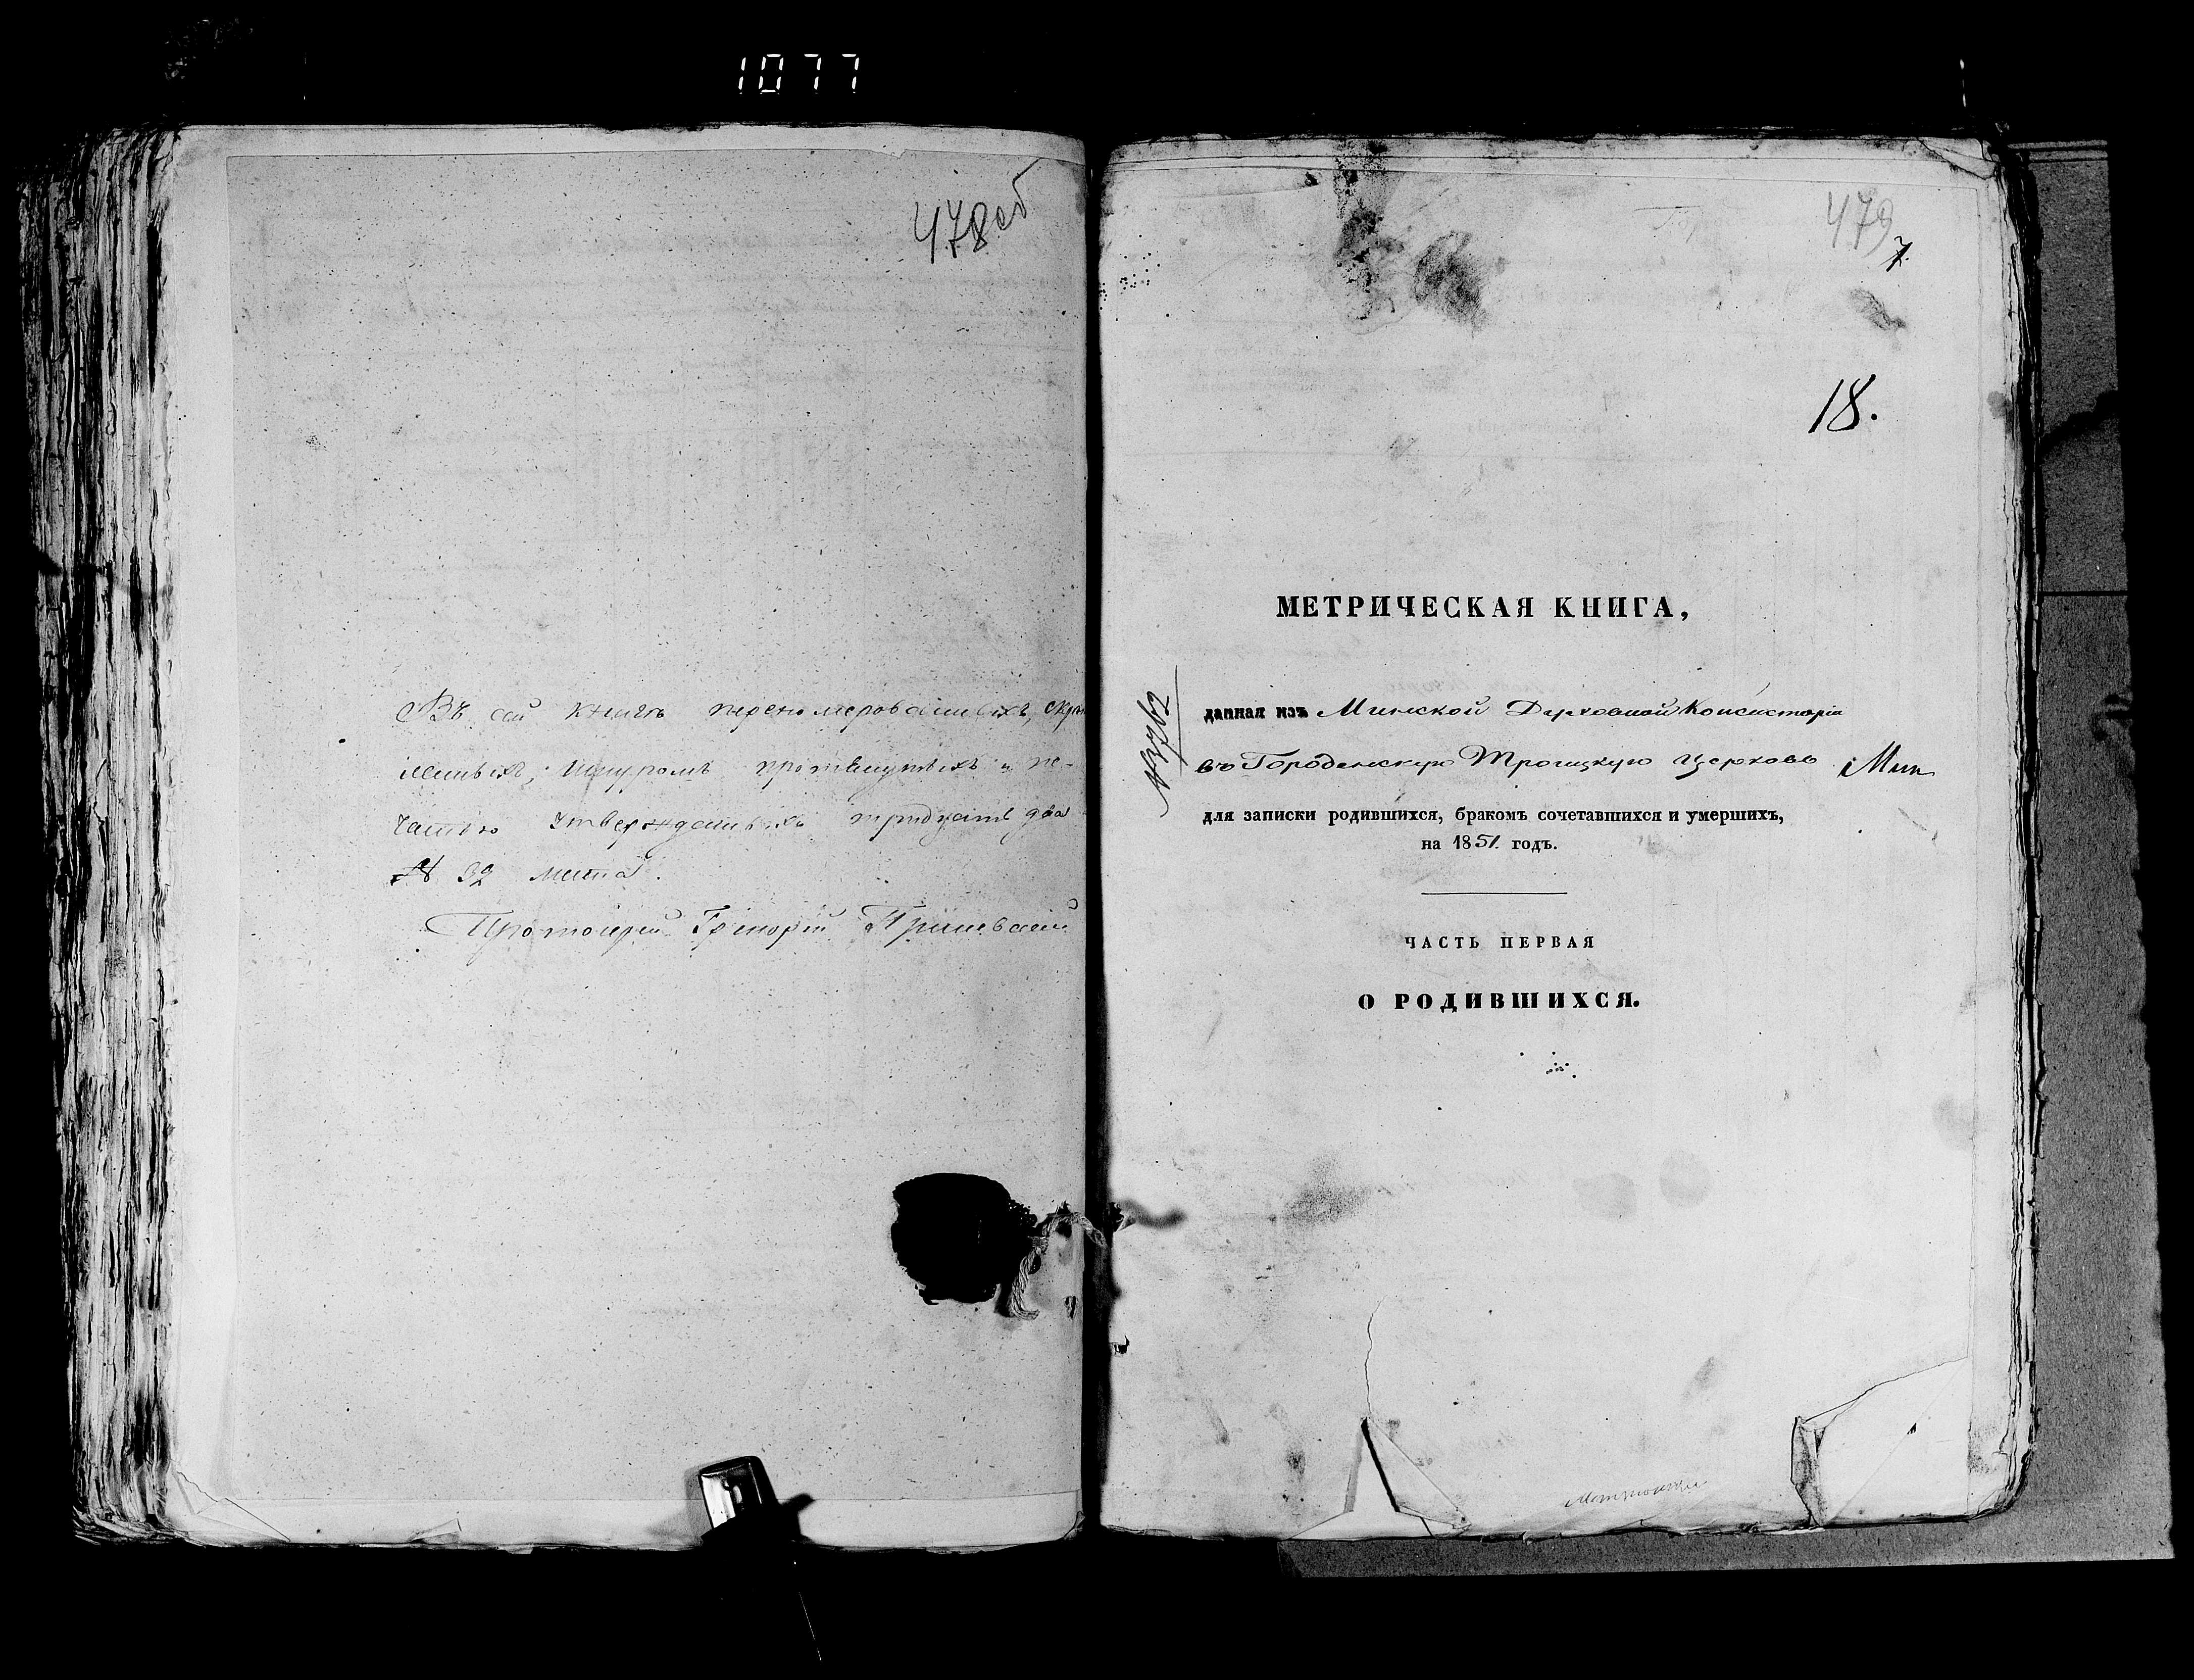 1077
478об
Въ сей книгѣ перенумерованныхъ, скрѣ
пленныхъ, шнуромъ протянутыхъ и пе-
чатью утвержденныхъ тридцать два
№ 32 листа.
Протоіерей Григорій
479
7.
18.
МЕТРИЧЕСКАЯ КНИГА,
данная изъ Минской Духовной Консисторіи
въ Городенскую Троицкую церковь Мин
для записки родившихся, бракомъ сочетавшихся и умершихъ,
на 1851. годъ.
ЧАСТЬ ПЕРВАЯ
О РОДИВШИХСЯ.